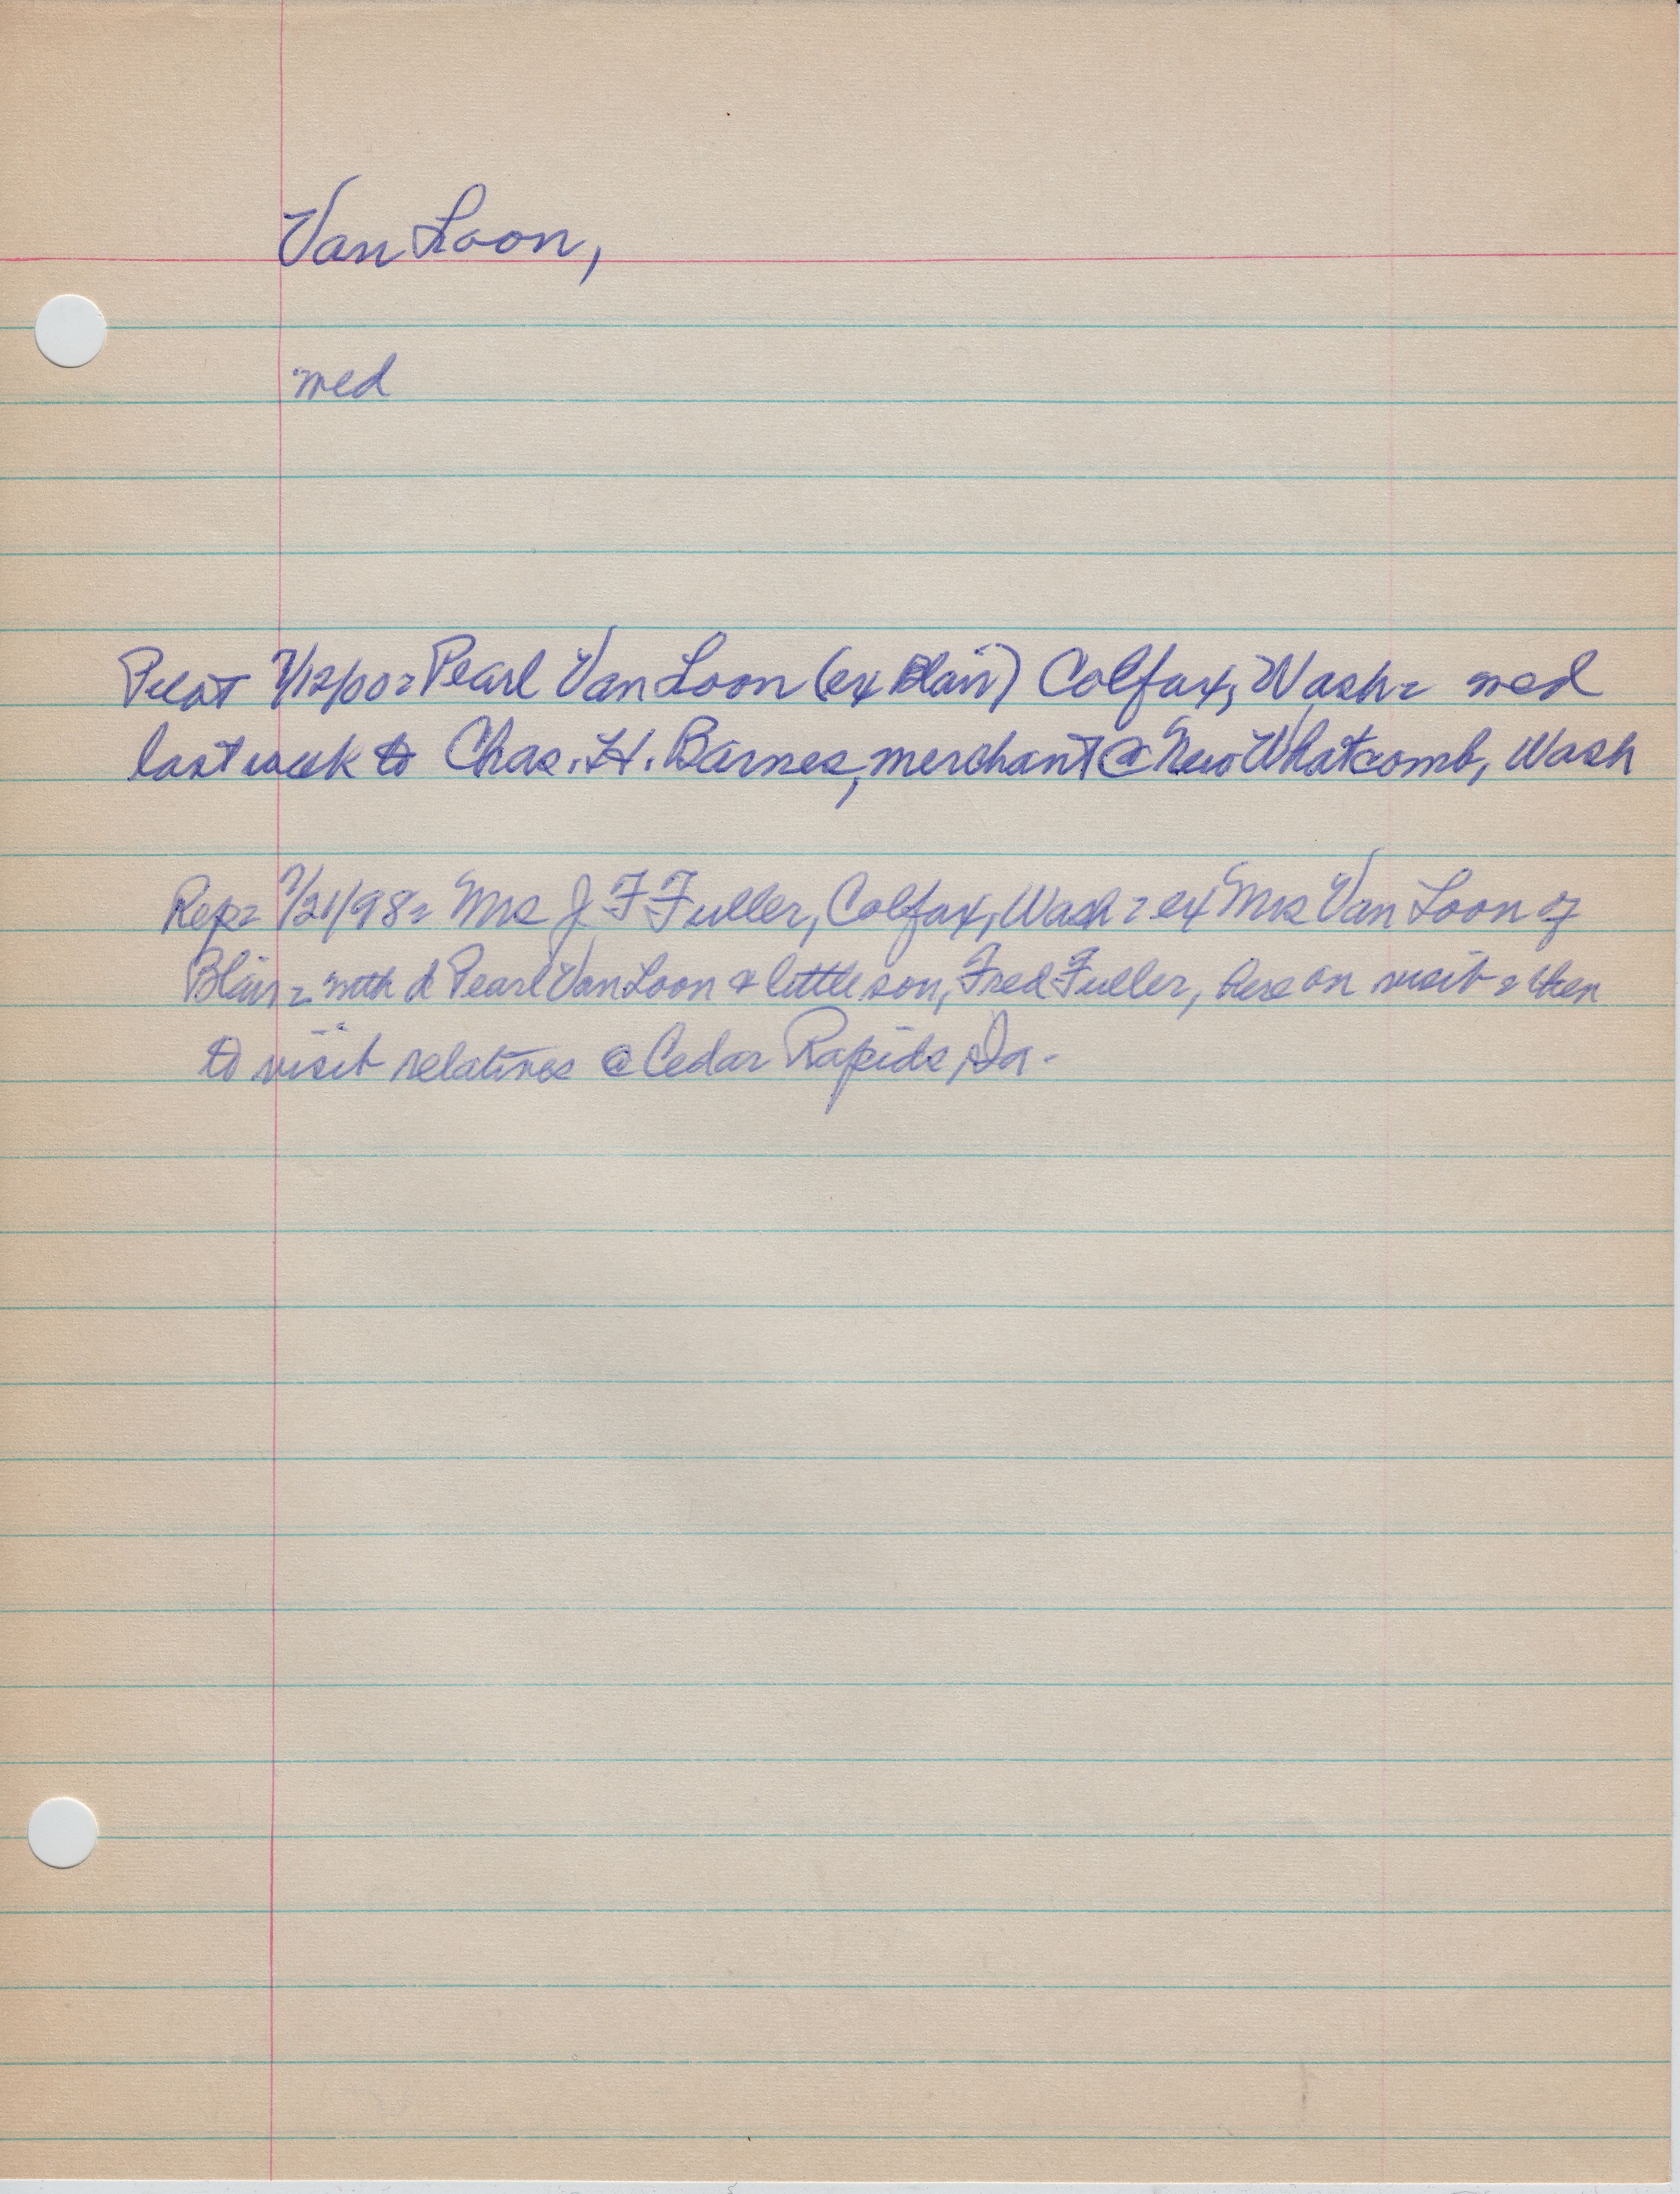 Van Loon,
med
Pilot 7/12/00= Pearl Van Loon (ex Blair) Colfax, Wash= med
last week to Chas. H. Barnes, merchant @ New Whatcomb, Wash
Rep= 7/21/98= Mrs J F Fuller, Colfax, Wash= ex Mrs Van Loon of
Blair= with d Pearl Van Loon & little son, Fred Fuller, here on visit & then
to visit relatives @ Cedar Rapids, Ia.